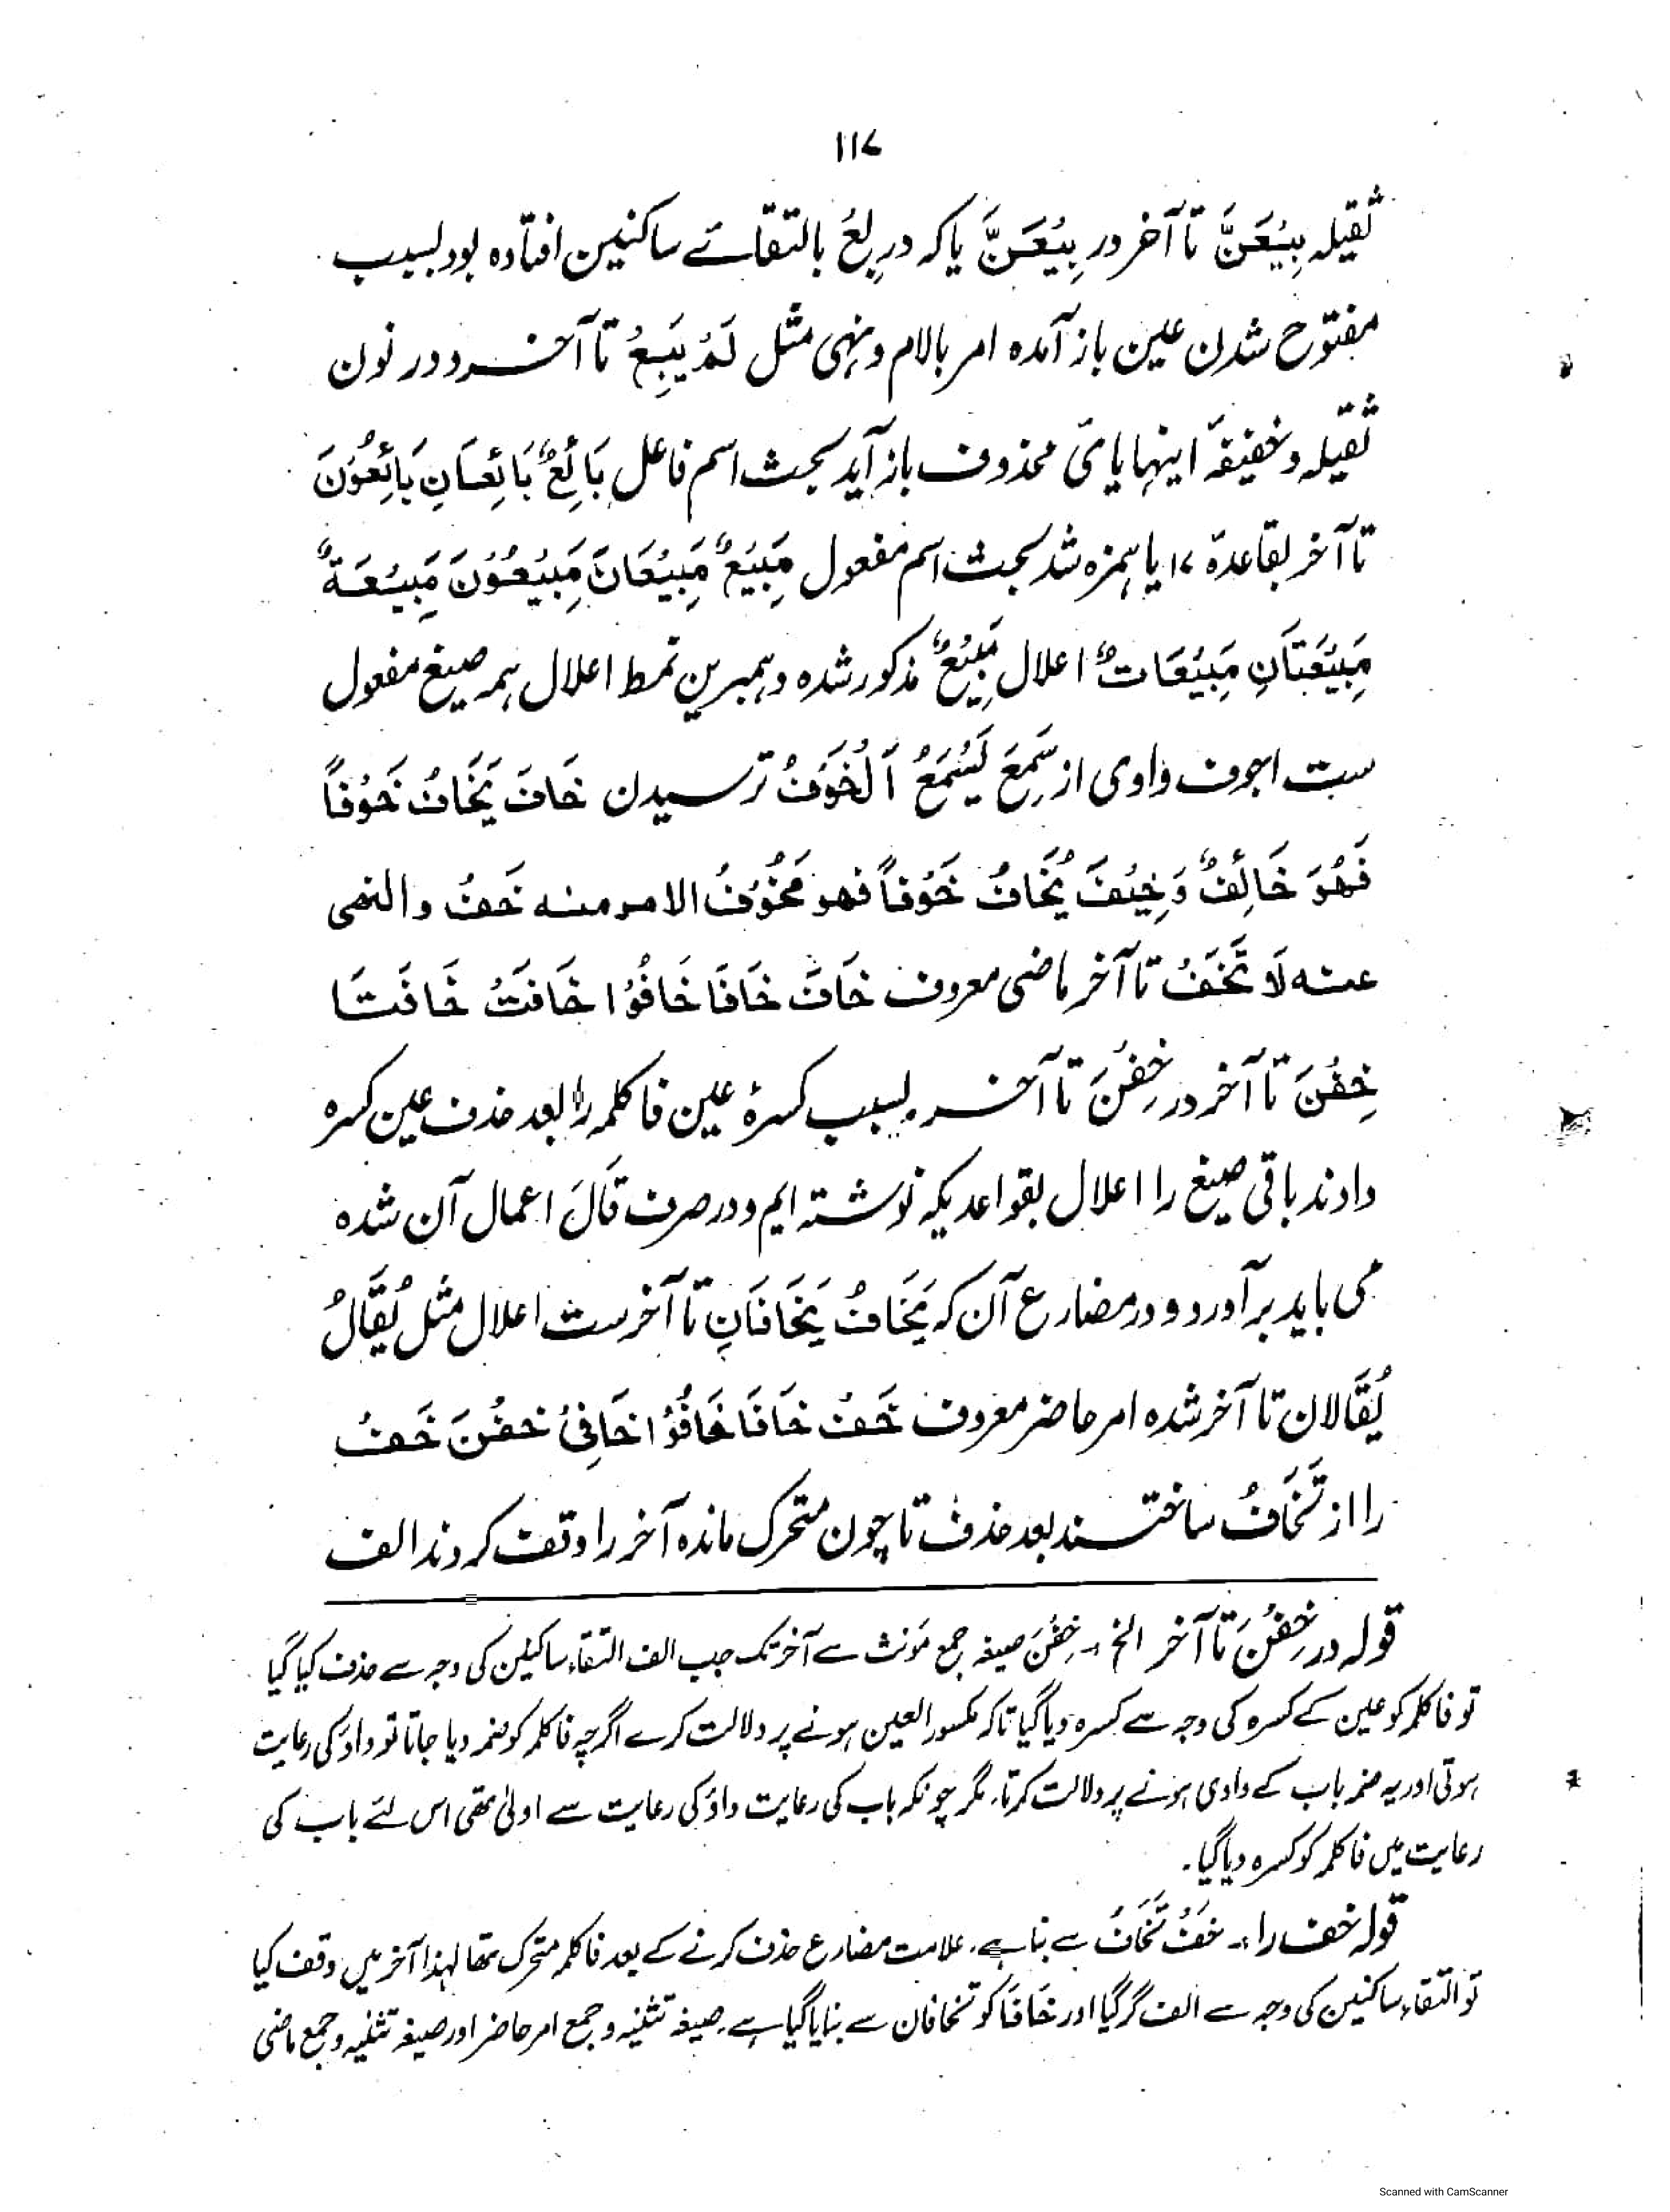 ۱۱۷
ثقیلہ بِيْعَنَّ تا آخر در بِيْعَنَّ یا کہ در بِعْ بالتقائے ساکنین افتادہ بود بسبب
مفتوح شدن عین باز آمدہ امر بالام و نہی مثل لَمْ يَبِعْ تا آخر و در نون
ثقیلہ و خفیفۂ اینہا یائ محذوف باز آید بحث اسم فاعل بَائِعٌ بَائِعَانِ بَائِعُوْنَ
تا آخر بقاعدۂ ۱۷ یا ہمزہ شد بحث اسم مفعول مَبِيْعٌ مَبِيْعَانِ مَبِيْعُوْنَ مَبِيْعَةٌ
مَبِيْعَتَانِ مَبِيْعَاتٌ اعلال مَبِيْعٌ مذکور شدہ و ہمبرین نمط اعلال ہمہ صیغ مفعول
ست اجوف واوی از سَمِعَ يَسْمَعُ اَلْخَوْفُ ترسیدن خَافَ يَخَافُ خَوْفًا
فَهُوَ خَائِفٌ وَخِيْفَ يُخَافُ خَوْفًا فهو مَخُوْفٌ الامر منه خَفْ والنهى
عنه لَا تَخَفْ تا آخر ماضی معروف خَافَ خَافَا خَافُوْا خَافَتْ خَافَتَا
خِفْنَ تا آخر در خِفْنَ تا آخر بسبب کسرۂ عین فا کلمہ را بعد حذف عین کسرہ
دادند باقی صیغ را اعلال بقواعدیکہ نوشتہ ایم و در صرف قَالَ اعمال آن شدہ
می باید بر آورد و در مضارع آن کہ يَخَافُ يَخَافَانِ تا آخر ست اعلال مثل يُقَالُ
يُقَالان تا آخر شدہ امر حاضر معروف خَفْ خَافَا خَافُوْا خَافِىْ خَفْنَ خَفْ
را از تَخَافُ ساختند بعد حذف تا چون متحرک ماندہ آخر را وقف کردند الف
قولہ در خِفْنَ تا آخر الخ۔ خِفْنَ صیغہ جمع مؤنث سے آخر تک جب الف التقاء ساکنین کی وجہ سے حذف کیا گیا
تو فا کلمہ کو عین کے کسرہ کی وجہ سے کسرہ دیا گیا تاکہ مکسور العین ہونے پر دلالت کرے اگرچہ فا کلمہ کو ضمہ دیا جاتا تو واؤ کی رعایت
ہوتی اور یہ ضمہ باب کے وادی ہونے پر دلالت کرتا، مگر چونکہ باب کی رعایت واؤ کی رعایت سے اولیٰ تھی اس لئے باب کی
رعایت میں فا کلمہ کو کسرہ دیا گیا۔
قولہ خف را۔ خَفْ تَخَافُ سے بنا ہے، علامت مضارع حذف کرنے کے بعد فا کلمہ متحرک تھا لہذا آخر میں وقف کیا
تو التقاء ساکنین کی وجہ سے الف گر گیا اور خَافَا کو تخافان سے بنایا گیا ہے۔ صیغہ تثنیہ و جمع امر حاضر اور صیغہ تثنیہ و جمع ماضی
Scanned with CamScanner